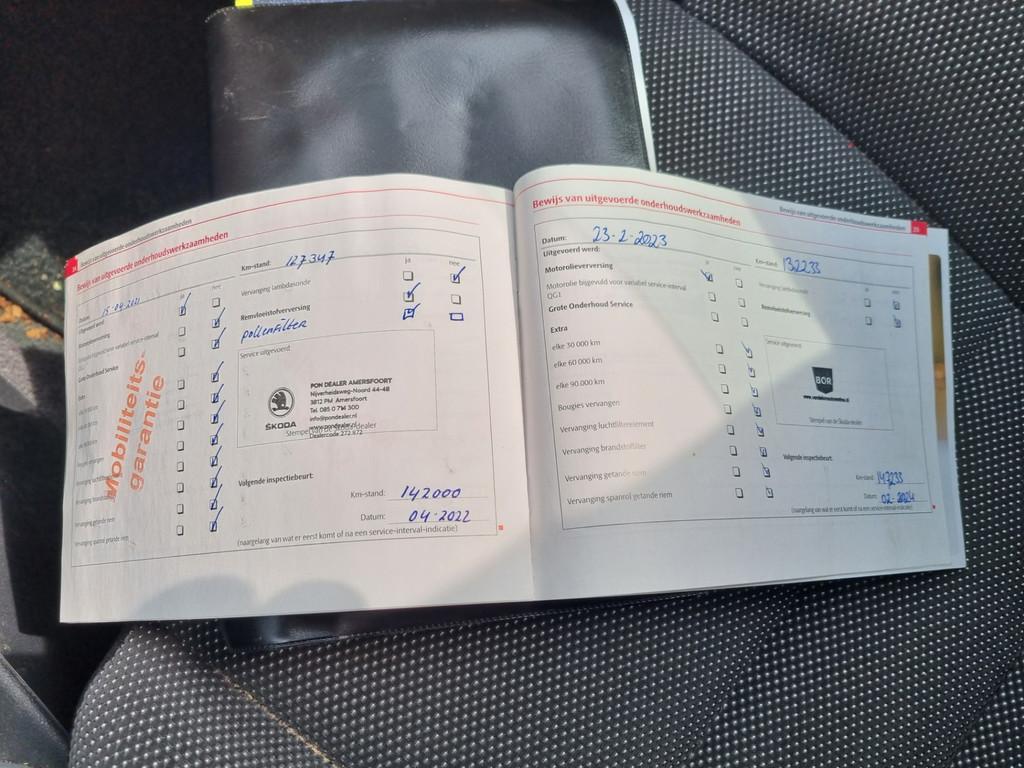 Bewijs van uitgevoerde onderhoudswerkzaamheden
Bewijs van uitgevoerde onderhoudswerkzaamheden
Datum: 15-04-2021
Km-stand: 127347
Uitgevoerd werd:
ja
neen
ja
neen
Vervanging lambdasonde
Remvloeistofverversing
pollenfilter
Grote Onderhoud Service
Vervanging getande riem
Vervanging spanrol getande riem
Mobiliteits-
garantie
Service uitgevoerd:
ŠKODA
PON DEALER AMERSFOORT
Nijverheidsweg-Noord 44-48
3812 PM Amersfoort
Tel. 085 0 714 300
info@pondealer.nl
www.pondealer.nl
Stempel van de Škoda-dealer
Dealercode 272.872
Volgende inspectiebeurt:
Km-stand: 142000
Datum: 04-2022
(naargelang van wat er eerst komt of na een service-interval-indicatie)
Bewijs van uitgevoerde onderhoudswerkzaamheden
Bewijs van uitgevoerde onderhoudswerkzaamheden
Datum: 23-2-2023
Km-stand: 132233
Uitgevoerd werd:
ja
neen
ja
neen
Motorolieverversing
Motorolie bijgevuld voor variabel service-interval
QG1
Vervanging lambdasonde
Grote Onderhoud Service
Remvloeistofverversing
Extra
elke 30 000 km
elke 60 000 km
elke 90.000 km
Bougies vervangen
Vervanging luchtfilterelement
Vervanging brandstoffilter
Vervanging getande riem
Vervanging spanrol getande riem
Service uitgevoerd:
BOR
Stempel van de Škoda-dealer
Volgende inspectiebeurt:
Km-stand: 147233
Datum: 02-2024
(naargelang van wat er eerst komt of na een service-interval-indicatie)